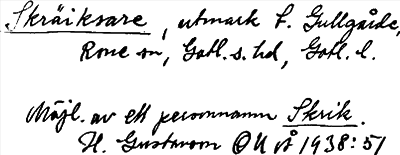 Skräiksare, utmark t. Gullgårde,
Rone sn, Gotl. s. hd, Gotl. l.
Möjl. av ett personnamn Skrik.
H. Gustavson OUÅ 1938:51